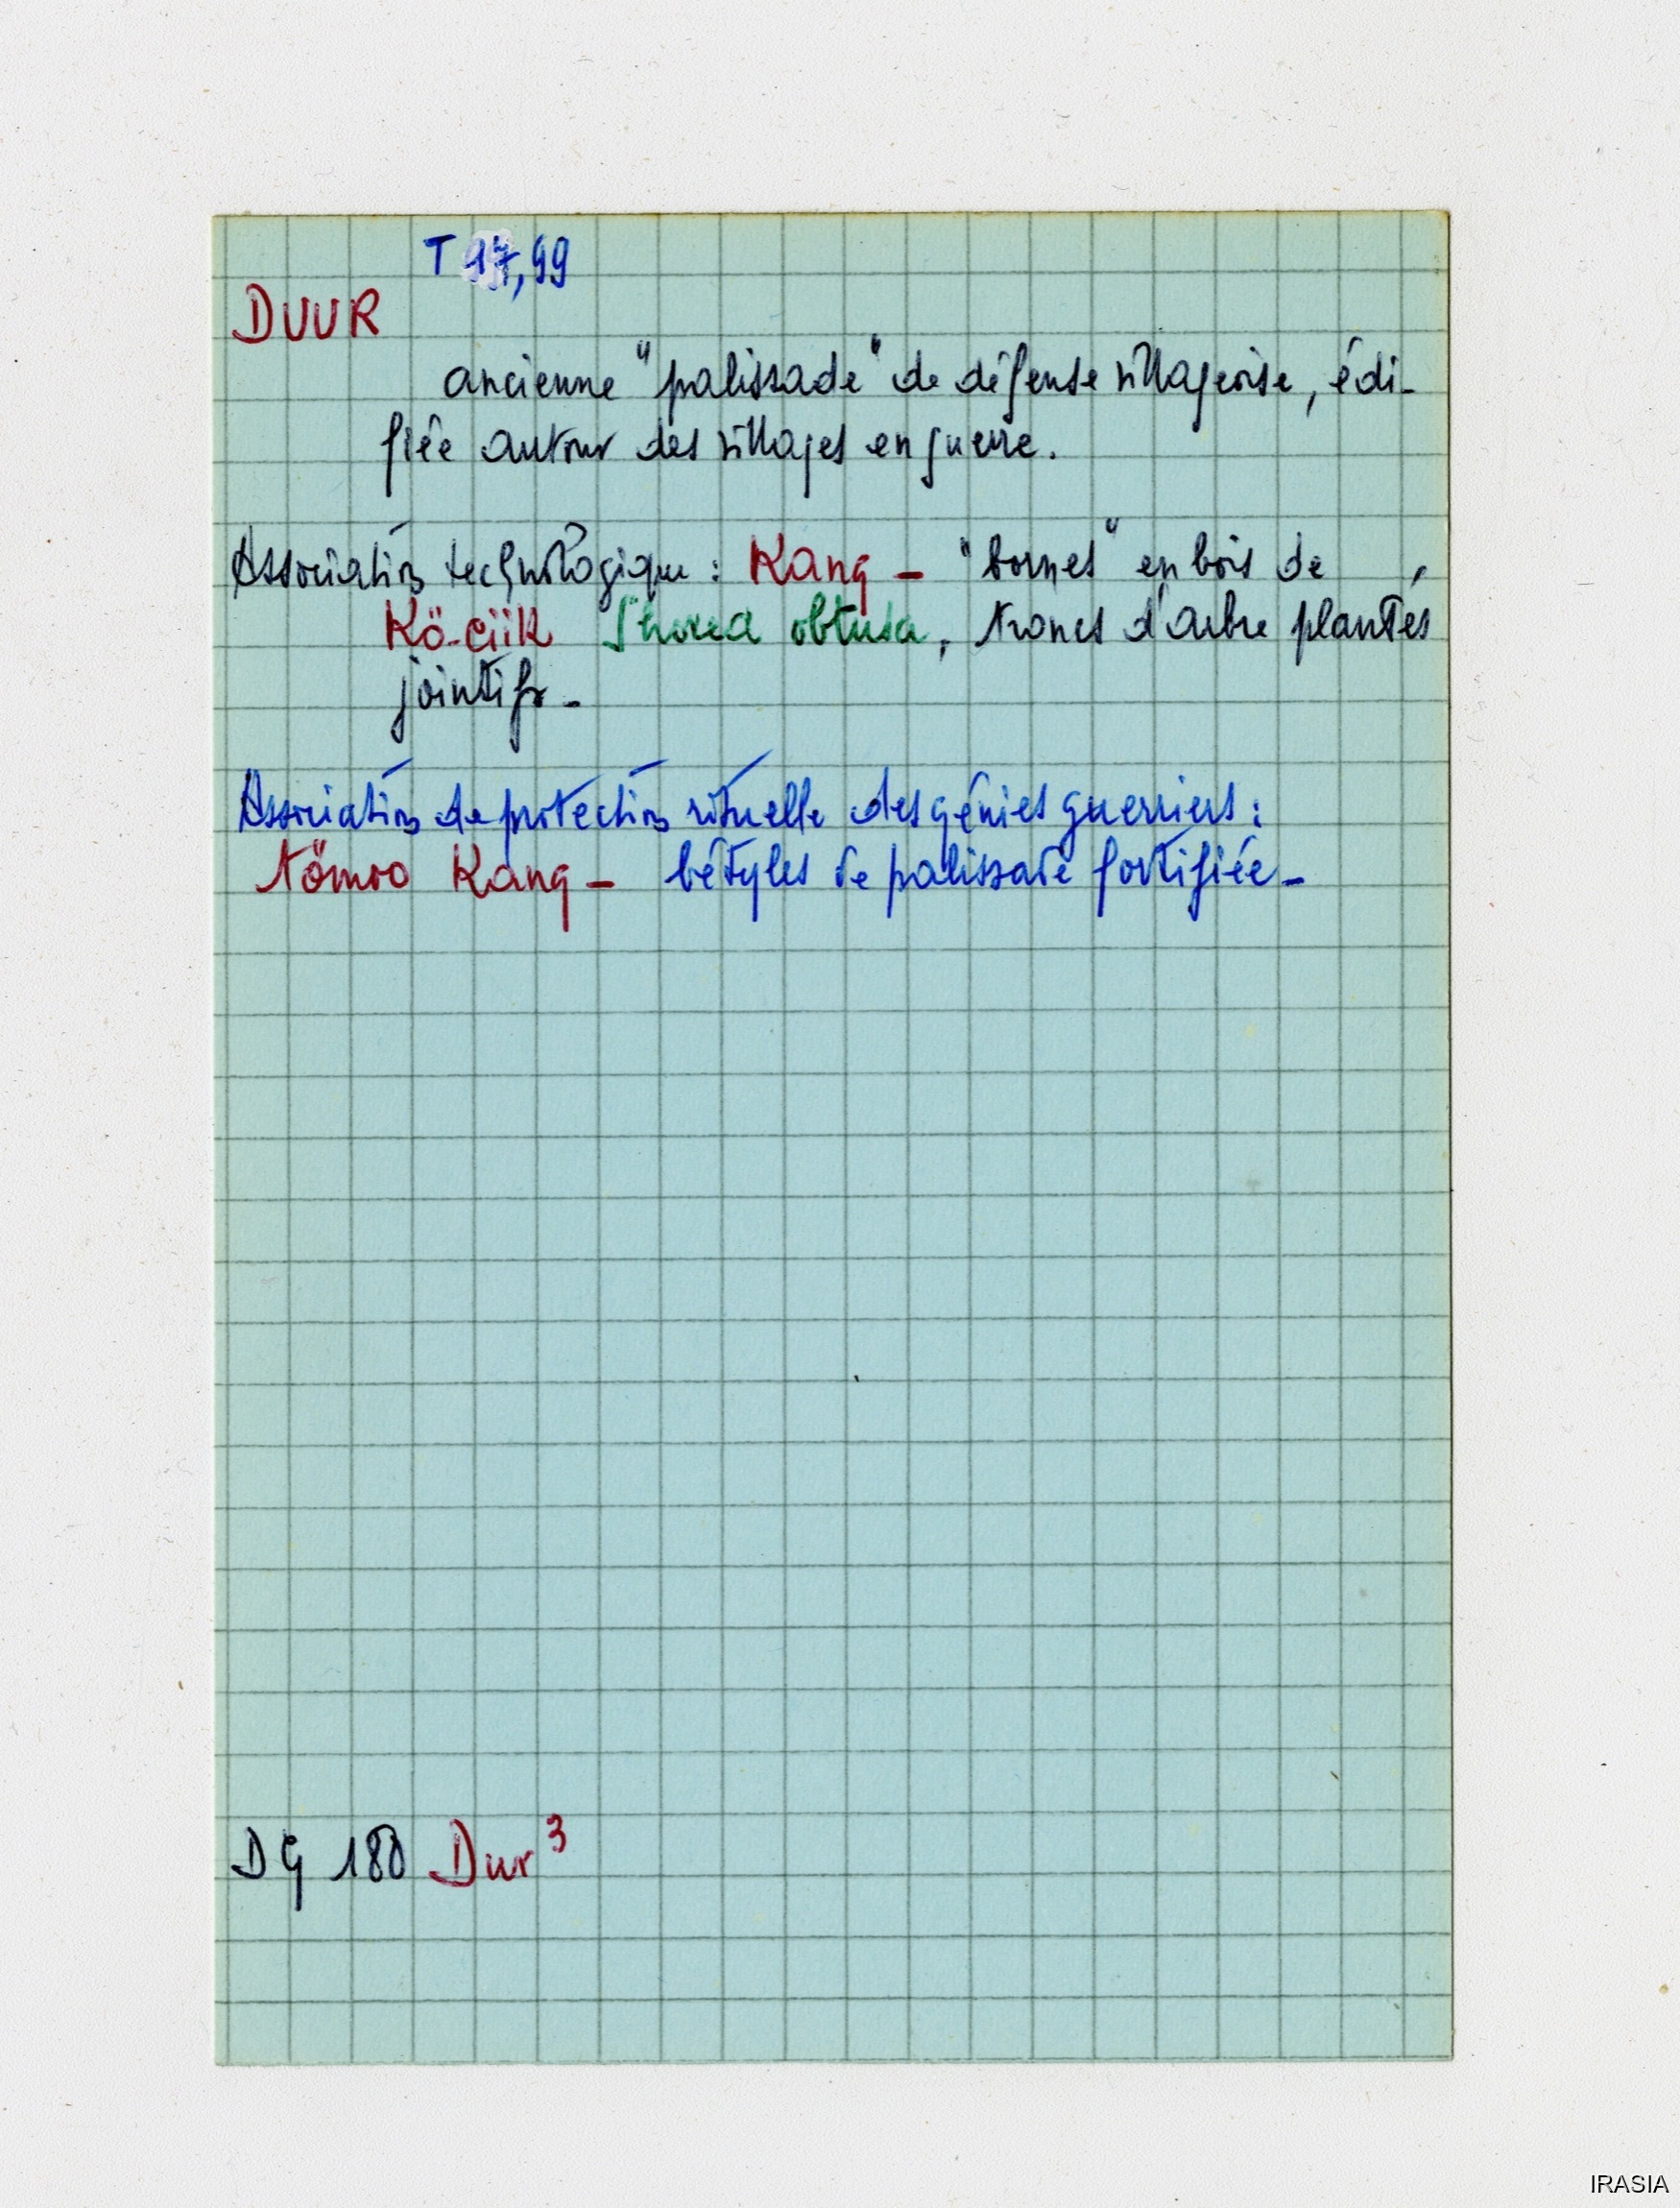 T 17,99
DUUR
ancienne "palissade" de défense villageoise, édi-
fiée autour des villages en guerre.
Association technologique : Kang – "bornes" en bois de
Kö-ciik Shorea obtusa, troncs d'arbre plantés
jointifs –
Association de protection rituelle des génies guerriers :
tömoo Kang – bétyles de palissade fortifiée –
DG 180 Dur³
IRASIA